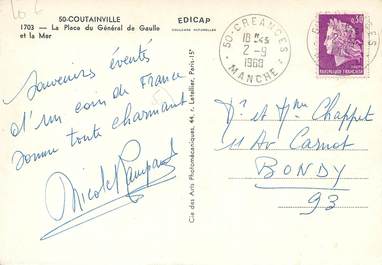 50-COUTAINVILLE
1703 — La Place du Général de Gaulle
et la Mer
EDICAP
COULEURS NATURELLES
50-CREANCES
18H45
2-9
1968
MANCHE
0,30
REPUBLIQUE FRANÇAISE
Souvenirs
d'un coin de France
somme toute charmant
Nicole
Cie des Arts Photomécaniques, 44, r. Letellier, Paris-15e
Dr et Mme Chappet
11 Av Carnot
BONDY
93